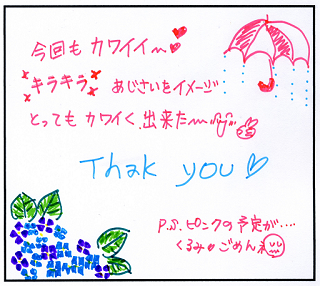 今回もカワイイ〜♥
キラキラ あじさいをイメージ
とってもカワイく、出来た〜
Thak you♡
P.S. ピンクの予定が‥‥
くるみ♥ごめんネ